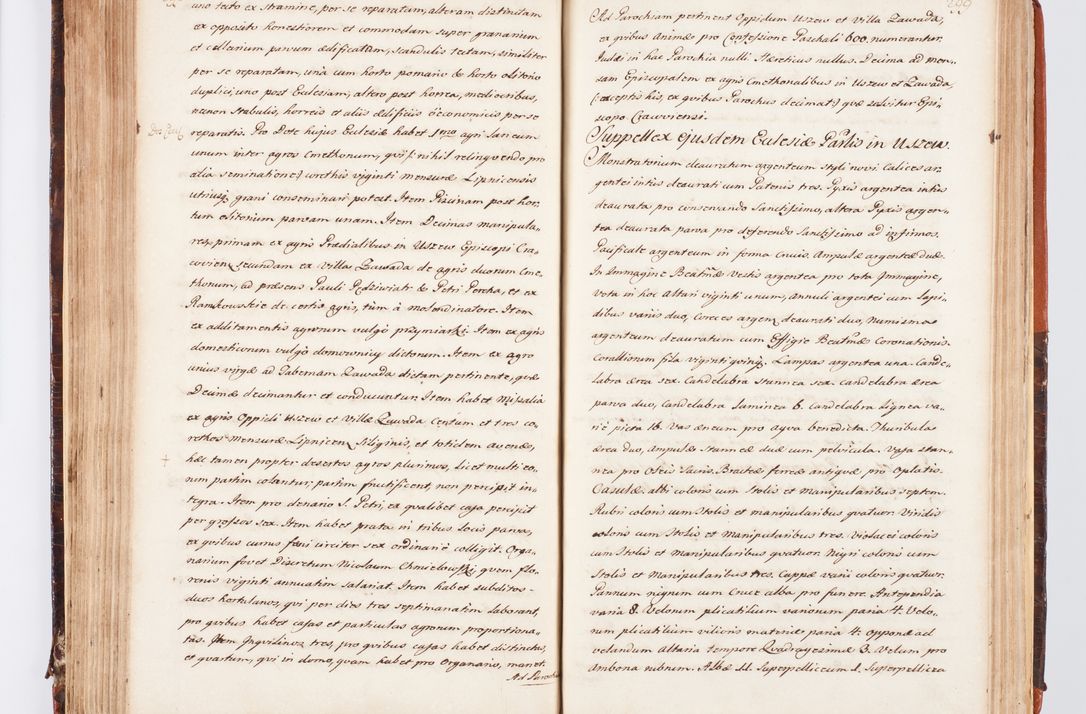 uno tecto ex stramine, per se reparatam, alteram distinctam
ex opposito honestiorem et commodam super granarium
et cellarium parvum ædificatam, scandulis tectam, similiter
per se reparatam, unà cum horto pomario & horto olitorio
duplici, uno post Ecclesiam, altero post horrea, mediocribus,
necnon stabulis, horreis et aliis ædificiis œconomicis per se
reparatis. Pro Dote hujus Ecclesiæ habet 1mo agri Laneum
unum inter agros Cmethonum, qui /: nihil relinquendo pro
alia seminatione :/ corethis viginti mensuræ Lipnicensis
utriusq grani conseminari potest. Item Piscinam post hor,
tum olitorium parvam unam. Item Decimas manipula,
res, primam ex agris Prædialibus in Uszew Episcopi Cra,
covien, secundam ex villa Zawada de agris duorum Cme,
thonum, ad præsens Pauli Pędziwiatr & Petri Percha, et ex
Ramkowskie de certis agris, tùm à molendinatore. Item
ex additamentis agrorum vulgò przymiarki. Item ex agris
domesticorum vulgò domownicy dictorum. Item ex agro
unius virgæ ad Tabernam Zawada dictam pertinente, quæ
Decimæ decimantur et conducuntur. Item habet Missalia
ex agris Oppidi Uszew et Villæ Zawada Centum et tres co,
rethos mensuræ Lipnicen, siliginis, et totidem avenæ,
hæc tamen propter desertos agros plurimos, licet multi eo,
rum partim colantur, partim fructificent, non percipit in,
tegra. Item pro denario S. Petri, ex qualibet casa percipit
per grossos sex. Item habet prata in tribus locis parva,
ex quibus currus fœni circiter sex ordinariè colligit. Orga,
narium fovet Discretum Nicolaum Chmielowski, quem flo,
renis viginti annuatim salariat. Item habet subditos
duos hortulanos, qui per dies tres septimanatim laborant,
pro quibus habet casas et particulas agrorum proportiona,
tas. Item Inquilinos tres, pro quibus casas habet distinctas,
et quartum, qui in domo, quam habet pro Organario, manet.
Ad Parochi
Ad Parochiam pertinent Oppidum Uszew et Villa Zawada,
ex quibus animæ pro Confessione Paschali 600. numerantur.
Judæi in hac Parochia nulli. Hæreticus nullus. Decima ad men,
sam Episcopalem ex agris Cmethonalibus in Uszew et Zawada,
(:exceptis his, ex quibus Parochus decimat:) quæ solvitur Epis,
copo Cracoviensi.
Suppellex ejusdem Ecclesiæ Parlis in Uszew.
Monstratorium deauratum argenteum styli novi Calices ar,
gentei intùs deaurati cum Patenis tres. Pyxis argentea intùs
deaurata pro conservando Sanctissimo, altera Pyxis argen,
tea deaurata parva pro deferendo Sanctissimo ad infirmos.
Pacificale argenteum in forma Crucis. Ampulæ argenteæ duæ.
In Immagine Beatmæ vestis argentea pro tota Immagine,
Vota in hoc Altari viginti unum, annuli argentei cum lapi,
dibus variis duo, Coreces argen, deaurati duo, Numisma
argenteum deauratum cum Effigie Beatmæ Coronationis.
Coralliorum fila viginti quinq. Lampas argentea una. Cande,
labra ærea sex. Candelabra stannea sex. candelabra ærea
parva duo, Candelabra luminea 6. Candelabra lignea va,
riè picta 16. Vas æneum pro aqva benedicta. Thuribula
ærea duo, ampulæ stanneæ duæ cum pelvicula. Vasa stan,
nea pro Oleis Sacris. Brateæ ferreæ antiquæ pro oplatis.
Casulæ albi coloris cum stolis et manipularibus septem.
Rubri coloris cum stolis et manipularibus quatuor. Viridis
coloris cum stolis et manipularibus tres. Violacei coloris
cum stolis et manipularibus quatuor. Nigri coloris cum
stolis et manipularibus tres. Cappæ varii coloris quatuor.
Pannum nigrum cum Cruce alba pro funere. Antependia
varia 8. Velorum plicatilium variorum paria 4. Velo,
rum plicatilium vilioris materiæ paria 4. opponæ ad
velandum Altaria tempore Quadragesimæ 3. Velum pro
ambona rubrum. Albæ 11. Superpelliceum 1. Superpellicea